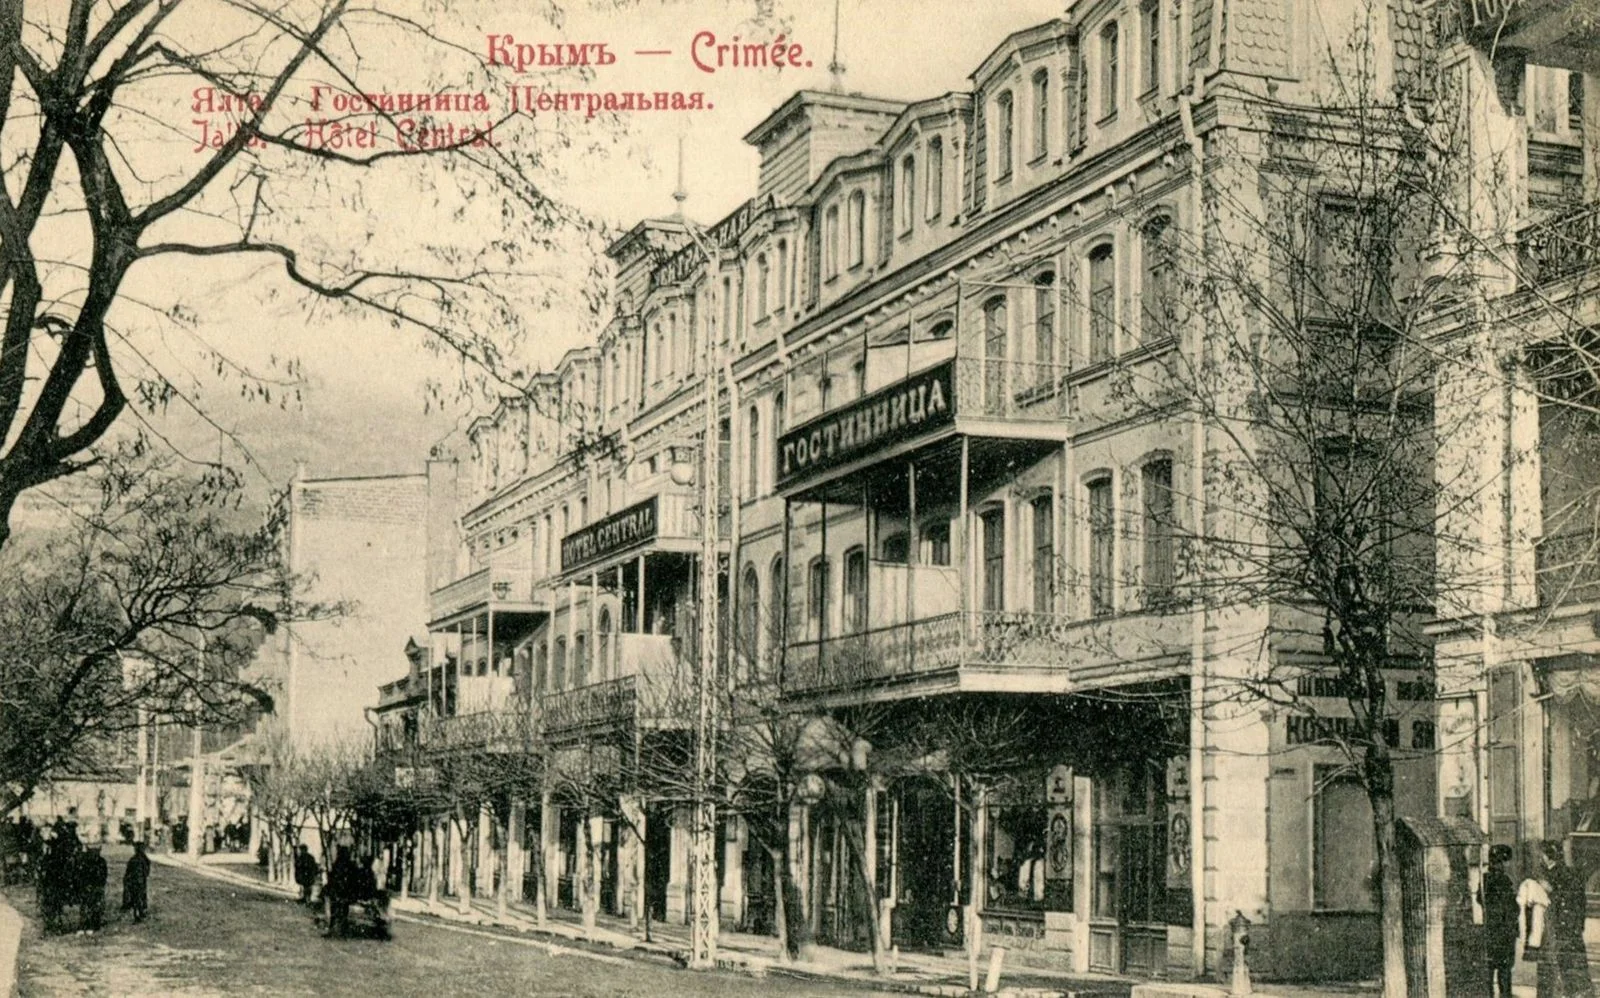 Крымъ — Crimée.
Ялта. Гостинница Центральная.
Jalta. Hôtel Central.
ГОСТИННИЦА
HOTEL CENTRAL